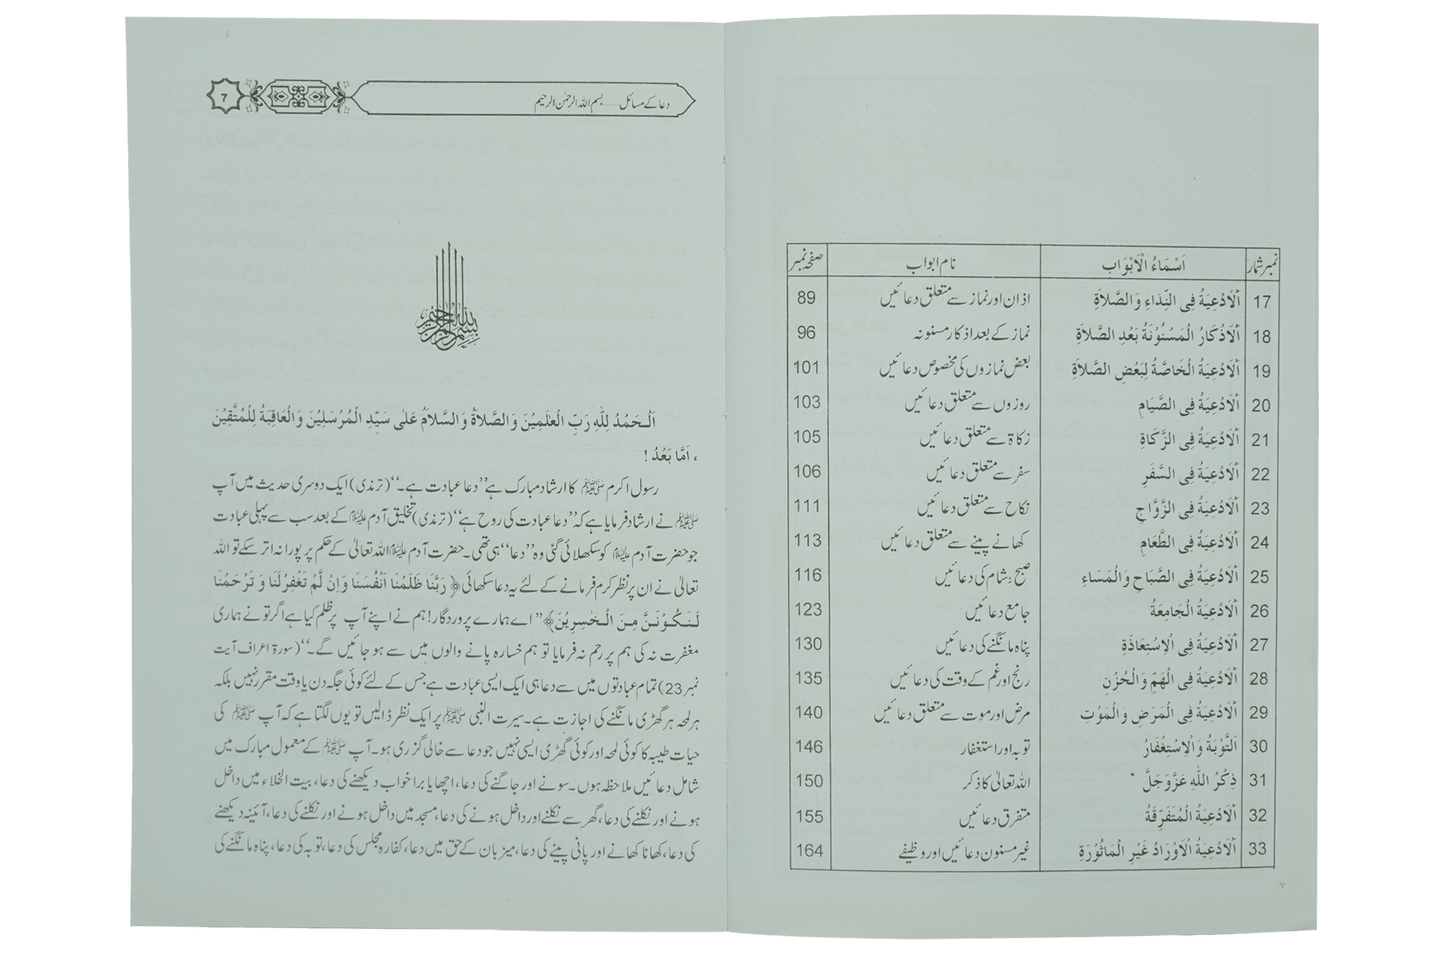 نمبر شمار اَسْمَاءُ الْاَبْوَاب نام ابواب صفحہ نمبر
17 اَلْاَدْعِيَةُ فِى النِّدَاءِ وَالصَّلَاةِ اذان اور نماز سے متعلق دعائیں 89
18 اَلْاَذْكَارُ الْمَسْنُوْنَةُ بَعْدِ الصَّلَاةِ نماز کے بعد اذکار مسنونہ 96
19 اَلْاَدْعِيَةُ الْخَاصَّةُ لِبَعْضِ الصَّلَاةِ بعض نمازوں کی مخصوص دعائیں 101
20 اَلْاَدْعِيَةُ فِى الصِّيَامِ روزوں سے متعلق دعائیں 103
21 اَلْاَدْعِيَةُ فِى الزَّكَاةِ زکاۃ سے متعلق دعائیں 105
22 اَلْاَدْعِيَةُ فِى السَّفَرِ سفر سے متعلق دعائیں 106
23 اَلْاَدْعِيَةُ فِى الزَّوَاجِ نکاح سے متعلق دعائیں 111
24 اَلْاَدْعِيَةُ فِى الطَّعَامِ کھانے پینے سے متعلق دعائیں 113
25 اَلْاَدْعِيَةُ فِى الصَّبَاحِ وَالْمَسَاءِ صبح و شام کی دعائیں 116
26 اَلْاَدْعِيَةُ الْجَامِعَةُ جامع دعائیں 123
27 اَلْاَدْعِيَةُ فِى الْاِسْتِعَاذَةِ پناہ مانگنے کی دعائیں 130
28 اَلْاَدْعِيَةُ فِى الْهَمِّ وَالْحُزْنِ رنج اور غم کے وقت کی دعائیں 135
29 اَلْاَدْعِيَةُ فِى الْمَرَضِ وَالْمَوْتِ مرض اور موت سے متعلق دعائیں 140
30 اَلتَّوْبَةُ وَالْاِسْتِغْفَارُ توبہ اور استغفار 146
31 ذِكْرُ اللّٰهِ عَزَّوَجَلَّ اللہ تعالیٰ کا ذکر 150
32 اَلْاَدْعِيَةُ الْمُتَفَرِّقَةُ متفرق دعائیں 155
33 اَلْاَدْعِيَةُ الْاَوْرَادُ غَيْرِ الْمَاثُوْرَةِ غیر مسنون دعائیں اور وظیفے 164
دعا کے مسائل ...... بسم اللہ الرحمٰن الرحیم 7
بسم الله الرحمن الرحيم
اَلْحَمْدُ لِلّٰهِ رَبِّ الْعٰلَمِيْنَ وَالصَّلَاةُ وَالسَّلَامُ عَلٰى سَيِّدِ الْمُرْسَلِيْنَ وَالْعَاقِبَةُ لِلْمُتَّقِيْنَ
، اَمَّا بَعْدُ !
رسول اکرم ﷺ کا ارشاد مبارک ہے ’’دعا عبادت ہے۔‘‘ (ترمذی) ایک دوسری حدیث میں آپ
ﷺ نے ارشاد فرمایا ہے کہ ’’دعا عبادت کی روح ہے‘‘ (ترمذی) تخلیق آدم علیہ السلام کے بعد سب سے پہلی عبادت
جو حضرت آدم علیہ السلام کو سکھلائی گئی وہ ’’دعا‘‘ ہی تھی۔ حضرت آدم علیہ السلام اللہ تعالیٰ کے حکم پر پورا نہ اتر سکے تو اللہ
تعالیٰ نے ان پر نظر کرم فرمانے کے لئے یہ دعا سکھائی ﴿ رَبَّنَا ظَلَمْنَا اَنْفُسَنَا وَاِنْ لَّمْ تَغْفِرْلَنَا وَ تَرْحَمْنَا
لَنَكُوْنَنَّ مِنَ الْخٰسِرِيْنَ﴾ ’’اے ہمارے پروردگار! ہم نے اپنے آپ پر ظلم کیا ہے اگر تو نے ہماری
مغفرت نہ کی ہم پر رحم نہ فرمایا تو ہم خسارہ پانے والوں میں سے ہو جائیں گے۔‘‘ (سورۃ اعراف آیت
نمبر 23) تمام عبادتوں میں سے دعا ہی ایک ایسی عبادت ہے جس کے لئے کوئی جگہ دن یا وقت مقرر نہیں بلکہ
ہر لمحہ ہر گھڑی مانگنے کی اجازت ہے۔ سیرت النبی ﷺ پر ایک نظر ڈالیں تو یوں لگتا ہے کہ آپ ﷺ کی
حیات طیبہ کا کوئی لمحہ اور کوئی گھڑی ایسی نہیں جو دعا سے خالی گزری ہو۔ آپ ﷺ کے معمول مبارک میں
شامل دعائیں ملاحظہ ہوں۔ سونے اور جاگنے کی دعا، اچھا یا برا خواب دیکھنے کی دعا، بیت الخلاء میں داخل
ہونے اور نکلنے کی دعا، گھر سے نکلنے اور داخل ہونے کی دعا، مسجد میں داخل ہونے اور نکلنے کی دعا، آئینہ دیکھنے
کی دعا، کھانا کھانے اور پانی پینے کی دعا، میزبان کے حق میں دعا، کفارہ مجلس کی دعا، توبہ کی دعا، پناہ مانگنے کی